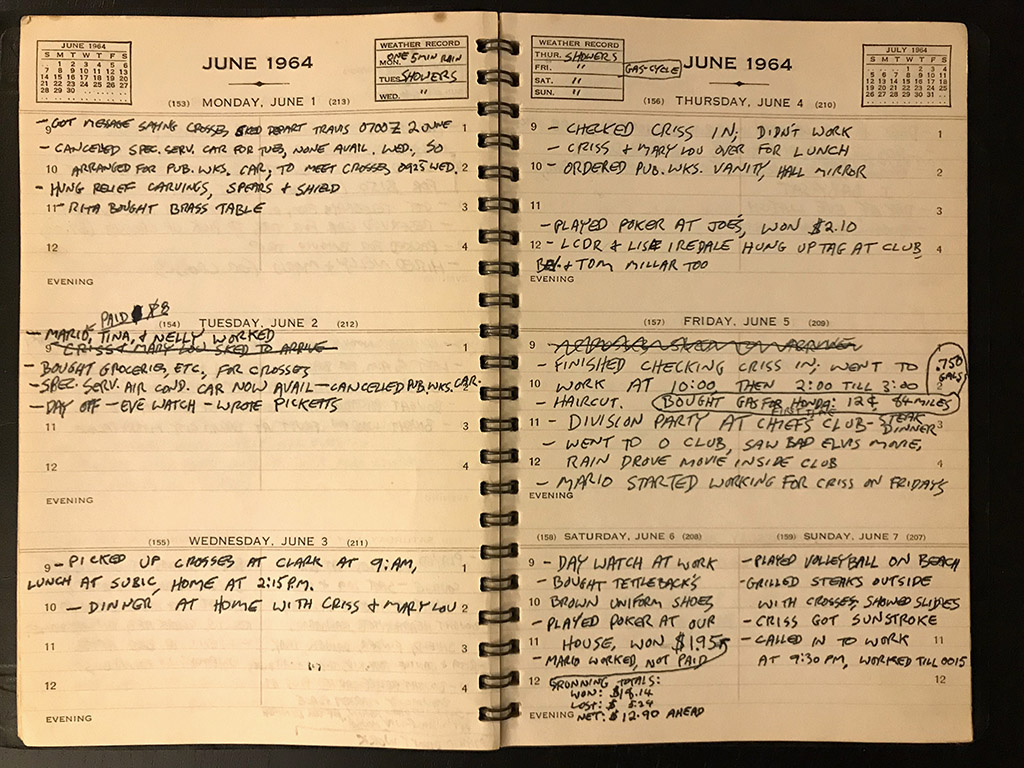 JUNE 1964
S M T W T F S
1 2 3 4 5 6
7 8 9 10 11 12 13
14 15 16 17 18 19 20
21 22 23 24 25 26 27
28 29 30
JUNE 1964
WEATHER RECORD
MON. ONE 5 MIN RAIN
TUES. SHOWERS
WED. "
(153) MONDAY, JUNE 1 (213)
- GOT MESSAGE SAYING CROSSES SKED DEPART TRAVIS 0700Z 2 JUNE
9 1
- CANCELLED SPEC. SERV. CAR FOR TUES, NONE AVAIL. WED., SO
10 ARRANGED FOR PUB. WKS. CAR, TO MEET CROSSES 0925 WED. 2
- HUNG RELIEF CARVINGS, SPEARS & SHIELD
11 - RITA BOUGHT BRASS TABLE 3
12 4
EVENING
PAID $8
(154) TUESDAY, JUNE 2 (212)
- MARIO, TINA, & NELLY WORKED
9 - CRISS & MARY LOU SKED TO ARRIVE 1
- BOUGHT GROCERIES, ETC. FOR CROSSES
10 - SPEC. SERV. AIR COND. CAR NOW AVAIL - CANCELLED PUB. WKS. CAR. 2
- DAY OFF - EVE WATCH - WROTE PICKETTS
11 3
12 4
EVENING
(155) WEDNESDAY, JUNE 3 (211)
9 - PICKED UP CROSSES AT CLARK AT 9:AM, 1
LUNCH AT SUBIC, HOME AT 2:15 P.M.
10 - DINNER AT HOME WITH CRISS & MARY LOU 2
11 3
12 4
EVENING
WEATHER RECORD
THUR. SHOWERS
FRI. "
SAT. "
SUN. "
GAS-CYCLE
JUNE 1964
JULY 1964
S M T W T F S
1 2 3 4
5 6 7 8 9 10 11
12 13 14 15 16 17 18
19 20 21 22 23 24 25
26 27 28 29 30 31
(156) THURSDAY, JUNE 4 (210)
9 - CHECKED CRISS IN; DIDN'T WORK 1
- CRISS & MARY LOU OVER FOR LUNCH
10 - ORDERED PUB. WKS. VANITY, HALL MIRROR 2
11 3
- PLAYED POKER AT JOE'S, WON $2.10
12 - LCDR & LISE IREDALE HUNG UP TAG AT CLUB 4
& TOM MILLAR TOO
EVENING
(157) FRIDAY, JUNE 5 (209)
9 1
- FINISHED CHECKING CRISS IN; WENT TO
10 WORK AT 10:00 THEN 2:00 TILL 3:00
.750 GALS
- HAIRCUT. BOUGHT GAS FOR HONDA: 12¢, 84 MILES
FIRST TIME
11 - DIVISION PARTY AT CHIEFS CLUB - STEAK DINNER 3
- WENT TO O CLUB, SAW BAD ELVIS MOVIE,
12 RAIN DROVE MOVIE INSIDE CLUB 4
- MARIO STARTED WORKING FOR CRISS ON FRIDAYS
EVENING
(158) SATURDAY, JUNE 6 (208)
9 - DAY WATCH AT WORK
- BOUGHT TETTLEBACK'S
10 BROWN UNIFORM SHOES
- PLAYED POKER AT OUR
11 HOUSE, WON $1.95
- MARIO WORKED, NOT PAID
12 RUNNING TOTALS:
WON: $18.14
LOST: $ 5.24
EVENING NET: $12.90 AHEAD
(159) SUNDAY, JUNE 7 (207)
- PLAYED VOLLEYBALL ON BEACH
- GRILLED STEAKS OUTSIDE
WITH CROSSES, SHOWED SLIDES
- CRISS GOT SUNSTROKE
- CALLED IN TO WORK 11
AT 9:30 PM, WORKED TILL 0015
12